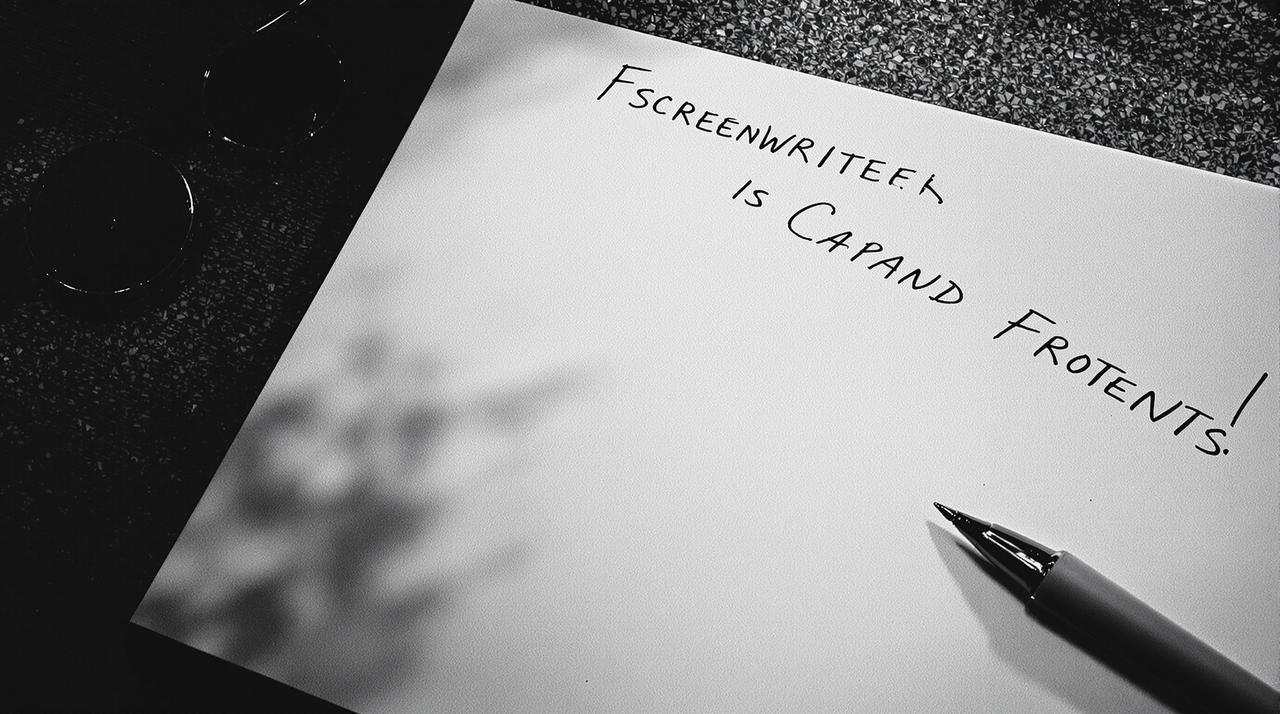 FSCREENWRITEER
IS CAPAND FROTENTS!